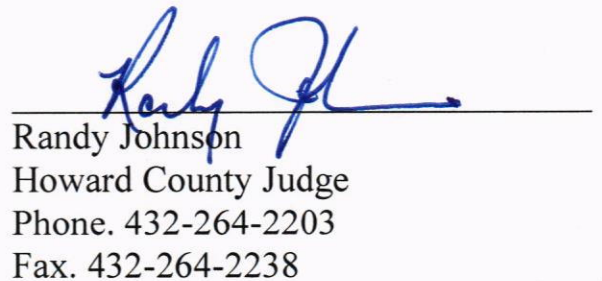 Randy Joh
Randy Johnson
Howard County Judge
Phone. 432-264-2203
Fax. 432-264-2238